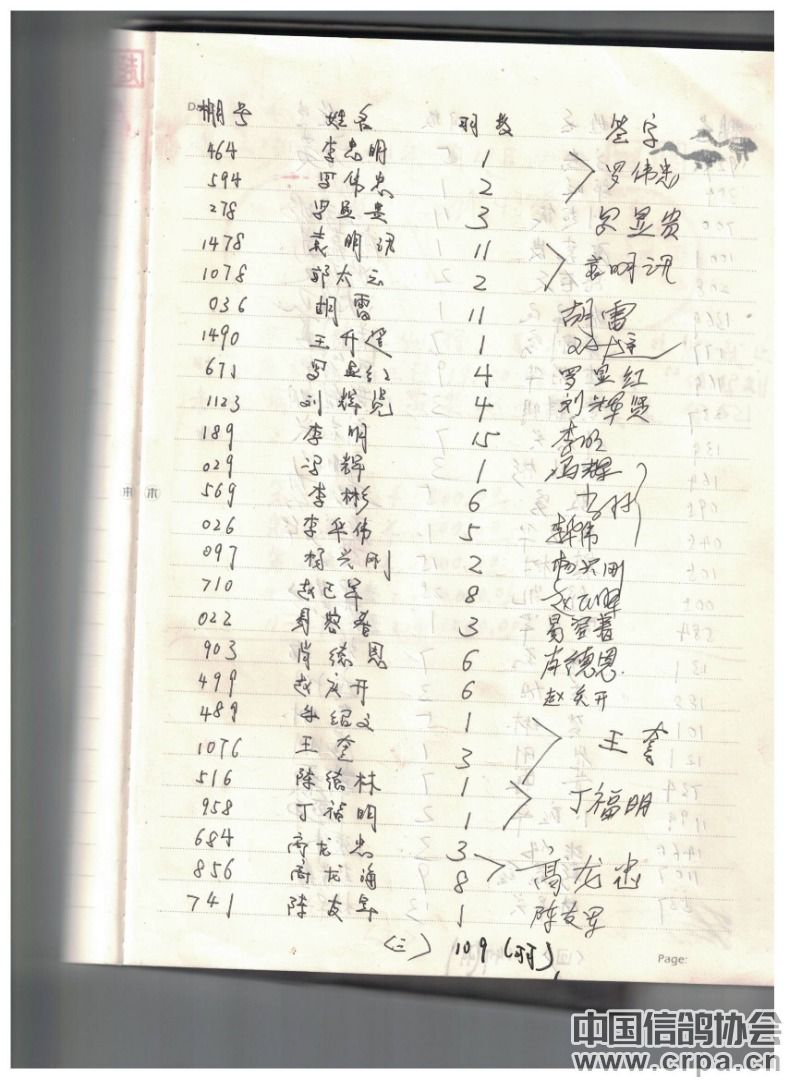 Da
棚号 姓名 羽数 签字
464 李忠明 1
594 罗伟忠 2 罗伟忠
278 罗显贵 3 罗显贵
1478 袁明讯 11
1078 郭太云 2 袁明讯
036 胡雷 11 胡雷
1490 王开 1
671 罗显红 4 罗显红
1123 刘辉贤 4 刘辉贤
189 李明 15 李明
029 冯辉 1 冯辉
569 李彬 6 李彬
026 李平伟 5 伟
097 杨兴刚 2 杨兴刚
710 赵 8 赵
022 3
903 肖德恩 6 肖德恩
499 赵庆开 6 赵庆开
489 绍文 1
1076 王奎 3 王奎
516 陈德林 1
958 丁福明 1 丁福明
684 高龙忠 3 高龙忠
856 高龙海 8
741 陈友军 1 陈友军
(三) 109(羽)
Page:
中国信鸽协会
www.crpa.cn